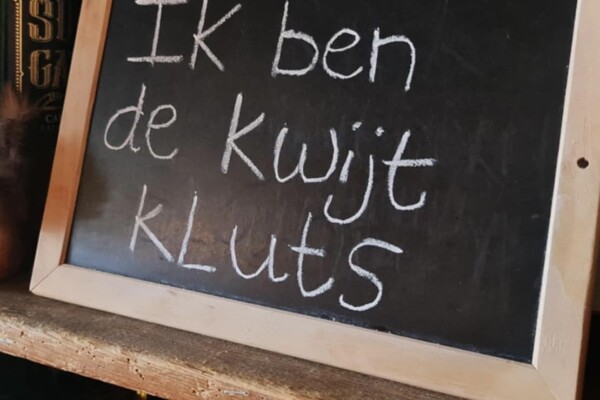 Ik ben
de kwijt
kLuts